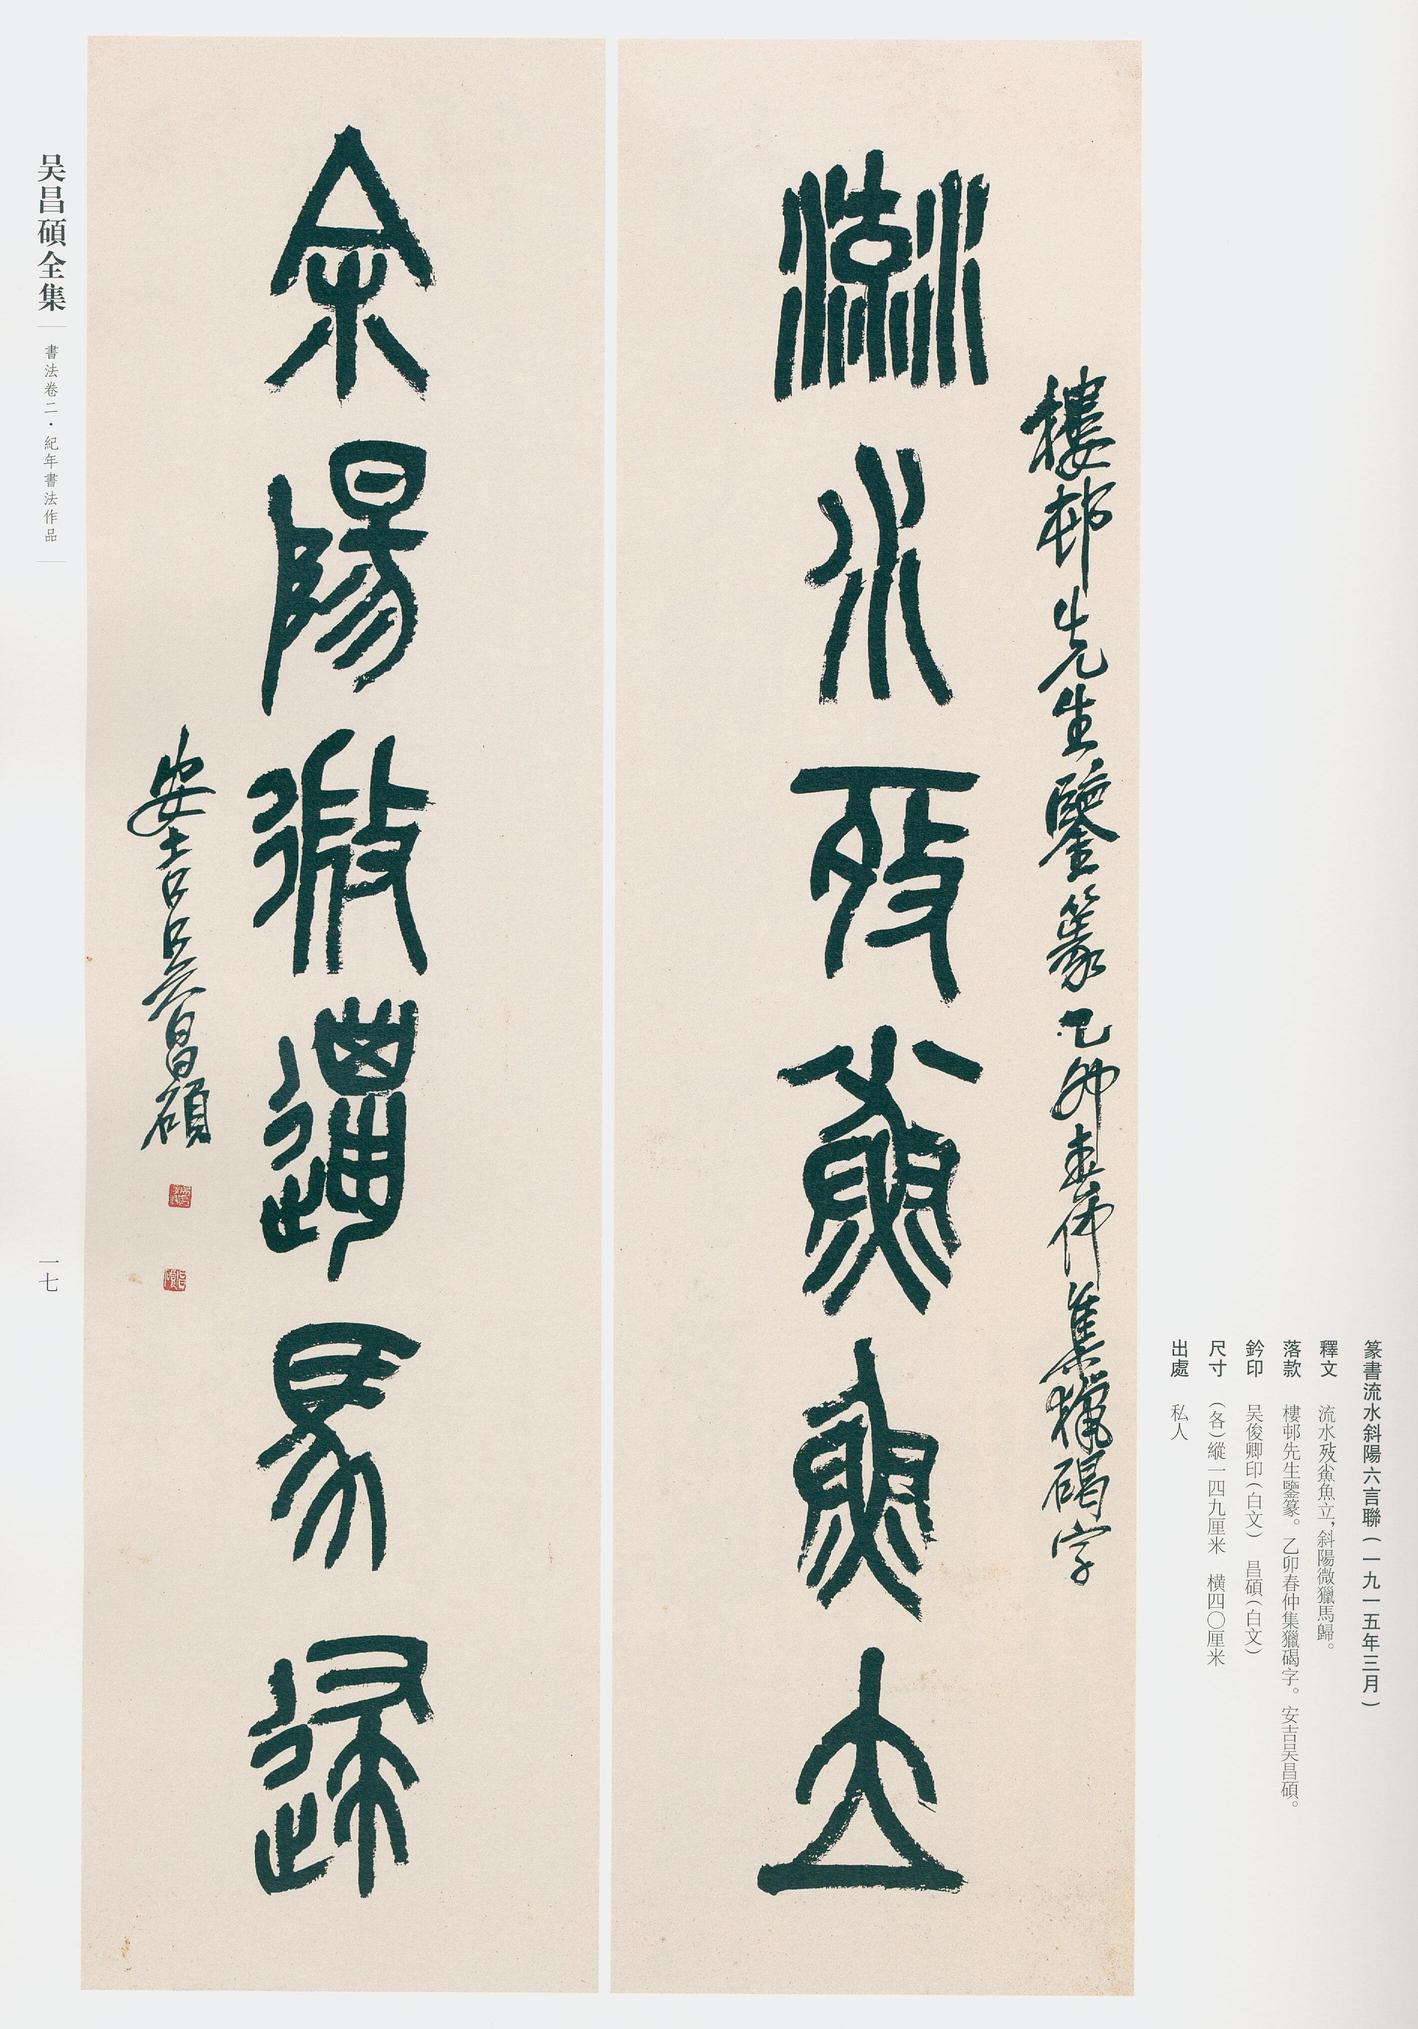 篆書流水斜陽六言聯（一九一五年三月）
釋文　流水歿鮝魚立，斜陽微獵馬歸。
落款　樓邨先生鑒篆。乙卯春仲集獵碣字。安吉吴昌碩。
鈐印　吴俊卿印（白文）　昌碩（白文）
尺寸　（各）縱一四九厘米　橫四〇厘米
出處　私人
樓邨先生鑒篆乙卯春仲集獵碣字
流水
魚立
斜陽微獵馬歸
安吉吴昌碩
吴昌碩全集
書法卷二·紀年書法作品
一七